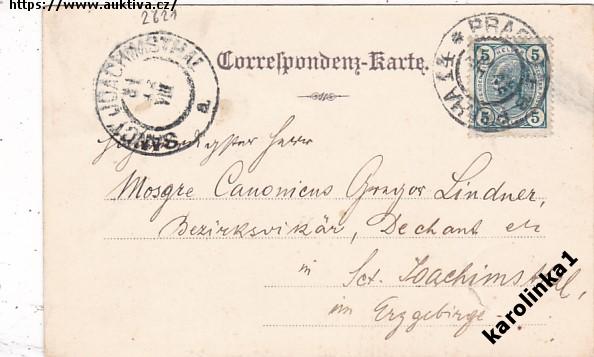 https://www.auktiva.cz/
2621
SANCT JOACHIMSTHAL
a.
VIII
Correspondenz-Karte.
PRAG
PRAHA
5 5
5 5
Herr
Mosgre Canonicus Gregor Lindner,
Bezirksvikär, Dechant etc
in Sct. Joachimsthal,
im Erzgebirge
karolinka1